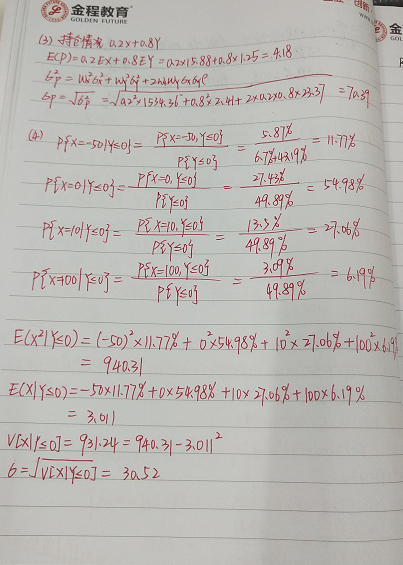 金程教育
GOLDEN FUTURE
(3) 持仓情况 0.2X+0.8Y
E(P)=0.2EX+0.8EY=0.2×15.88+0.8×1.25=4.18
σ²p=
σp=√σ²p=√0.2²×1534.36+0.8²×2.41+2×0.2×0.8×23.37 =70.39
(4) P{X=-50|Y≤0}= P{X=-50,Y≤0} / P{Y≤0} = 5.87% / 6.7%+43.19% = 11.77%
P{X=0|Y≤0}= P{X=0,Y≤0} / P{Y≤0} = 27.43% / 49.89% = 54.98%
P{X=10|Y≤0}= P{X=10,Y≤0} / P{Y≤0} = 13.5% / 49.89% = 27.06%
P{X=100|Y≤0}= P{X=100,Y≤0} / P{Y≤0} = 3.09% / 49.89% = 6.19%
E(X²|Y≤0)=(-50)²×11.77%+0²×54.98%+10²×27.06%+100²×6.19%
=940.31
E(X|Y≤0)=-50×11.77%+0×54.98%+10×27.06%+100×6.19%
=3.011
V[X|Y≤0]=931.24=940.31-3.011²
σ=√V[X|Y≤0]=30.52